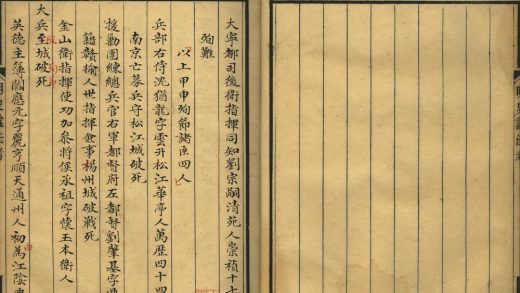 大寧都司後衛指揮同知劉宗嗣清苑人崇禎十七
殉難
以上甲申殉節諸臣四人
兵部右侍沈猶龍字雲升松江華亭人萬歷四十四
南京亡募兵守松江城破死
援勦團練總兵官右軍都督府左都督劉肇基字鼎
籍贛榆人世指揮僉事楊州城破戰死
金山衛指揮使功加參將侯承祖字懷玉本衛人
大兵至城破死
英德主簿閻應元字麗亨順天通州人初為江陰典